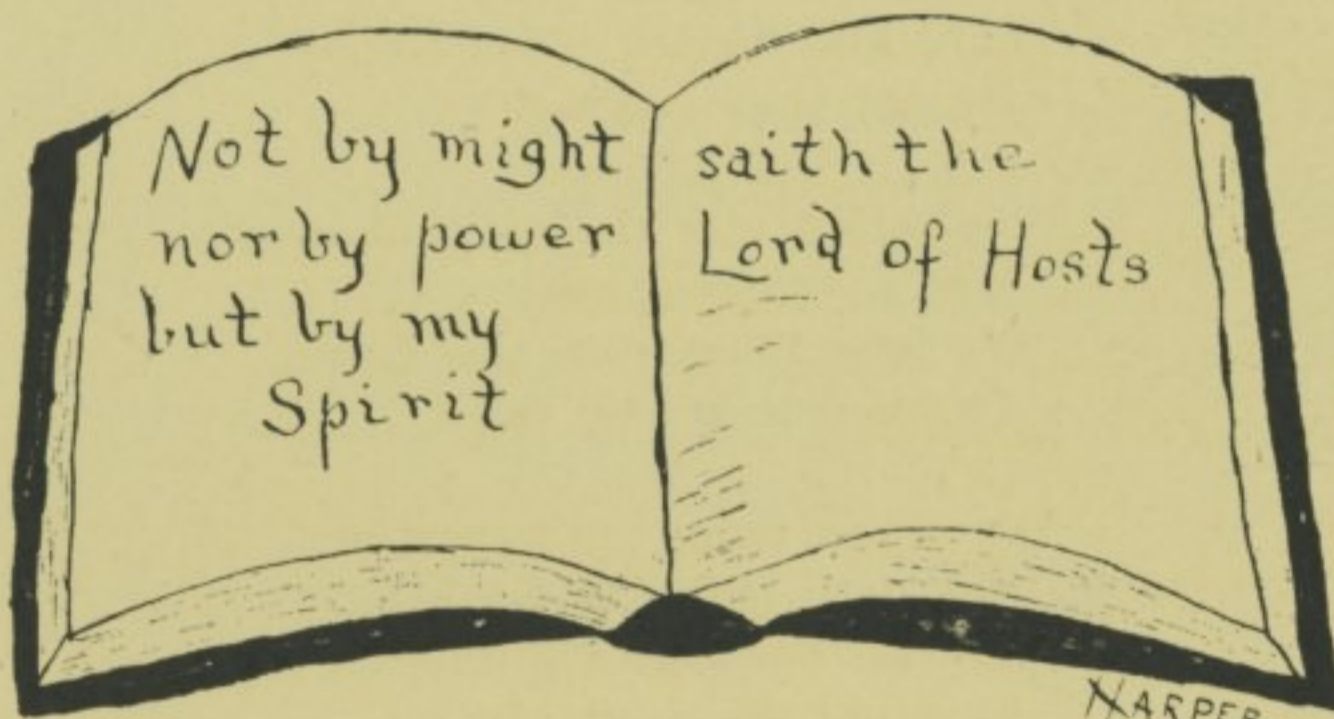 Not by might
nor by power
but by my
Spirit
saith the
Lord of Hosts
HARPER